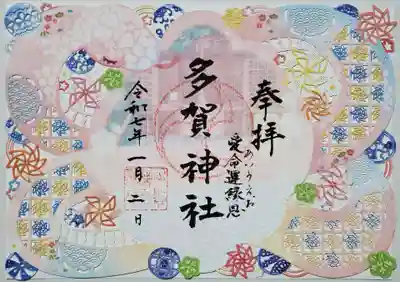 奉拝
あいうえお
愛命運縁恩
多賀神社
令和七年一月二日